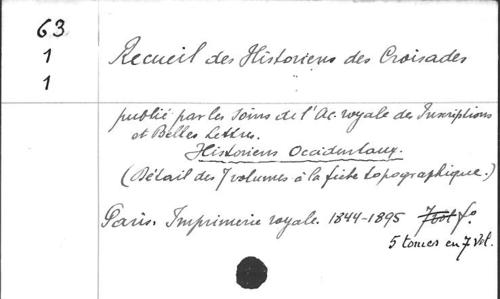 63
1
1
Recueil des Historiens des Croisades
publié par les soins de l'Ac. royale des Inscriptions
et Belles Lettres.
Historiens Occidentaux.
(Détail des 7 volumes à la fiche topographique.)
Paris. Imprimerie royale. 1844-1895 7 vol fo.
5 tomes en 7 vol.